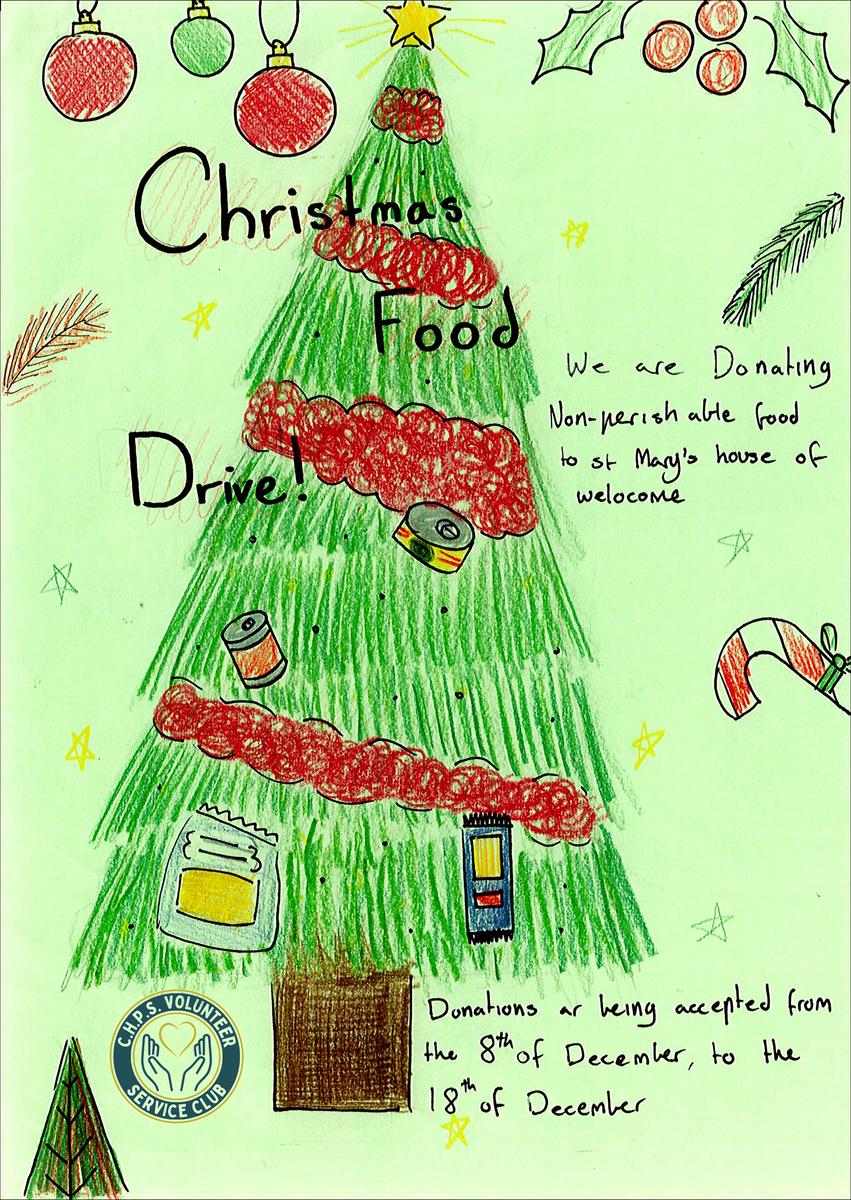 Christmas
Food
Drive!
We are Donating
Non-perishable food
to st Mary's house of
welocome
Donations ar being accepted from
the 8th of December, to the
18th of December
C.H.P.S. VOLUNTEER
SERVICE CLUB